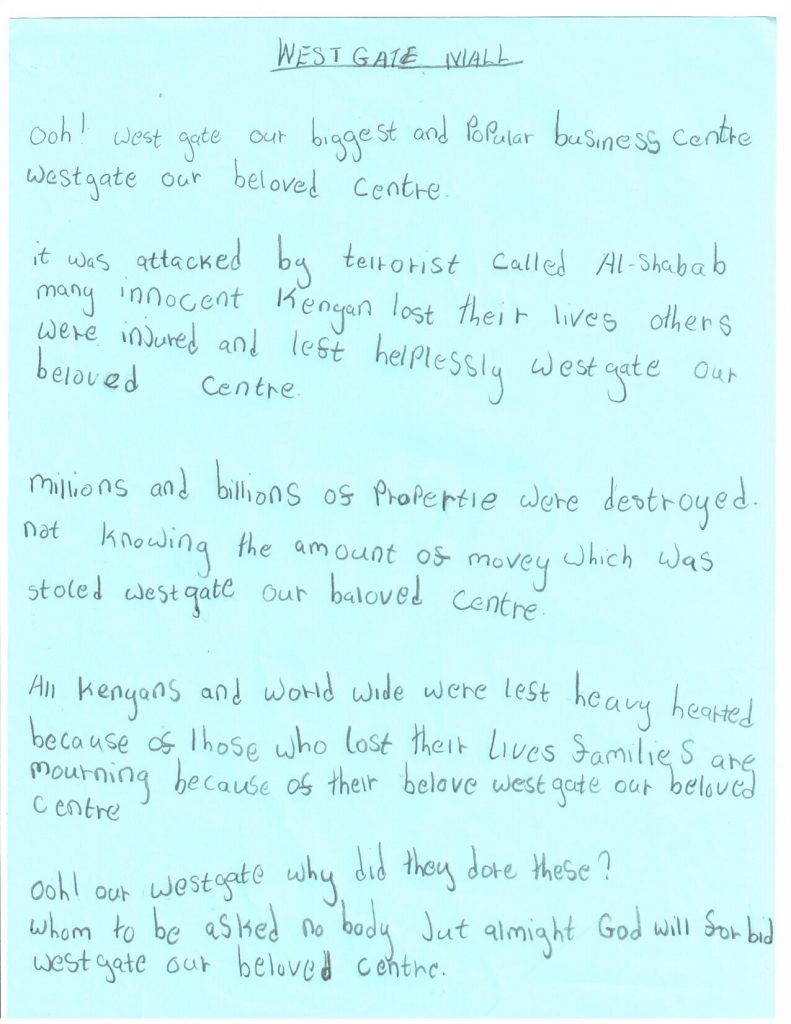 WEST GATE MALL
Ooh! west gate our biggest and Popular business centre
westgate our beloved centre.
it was attacked by teirorist called Al-Shabab
many innocent Kengan lost their lives others
were injured and left helplessly westgate our
beloved centre.
millions and billions of Propertie were destroyed.
not knowing the amount of movey which was
stoled westgate our baloved centre.
All Kenyans and world wide were left heavy hearted
because of Those who lost their Lives families are
mourning because of their belove westgate our beloved
centre
Ooh! our westgate why did they dore these?
whom to be asked no body Jut almight God will for bid
westgate our beloved centre.